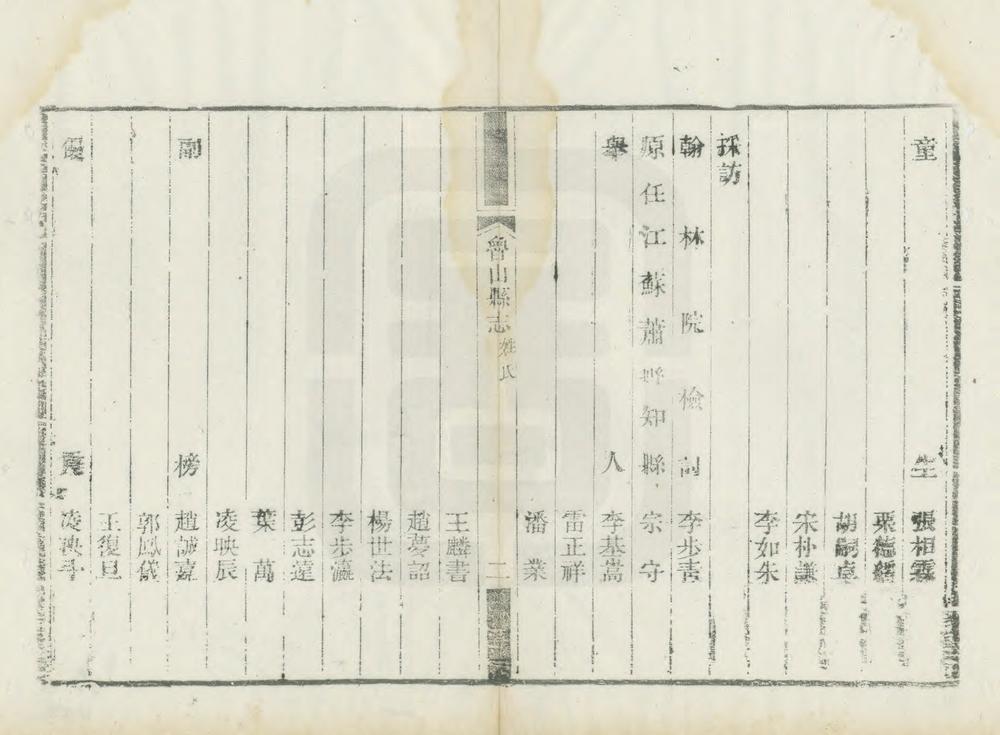 童生 張相霖
栗德經
胡嗣卓
宋朴謙
李如朱
採訪
翰林院檢討 李步青
原任江蘇蕭縣知縣 宗守
舉人 李基嵩
雷正祥
潘業
魯山縣志 姓氏 二
王麟書
趙夢詔
楊世法
李步瀛
彭志達
葉萬
凌映辰
副榜 趙誠嘉
郭鳳儀
王復旦
優貢 凌映斗